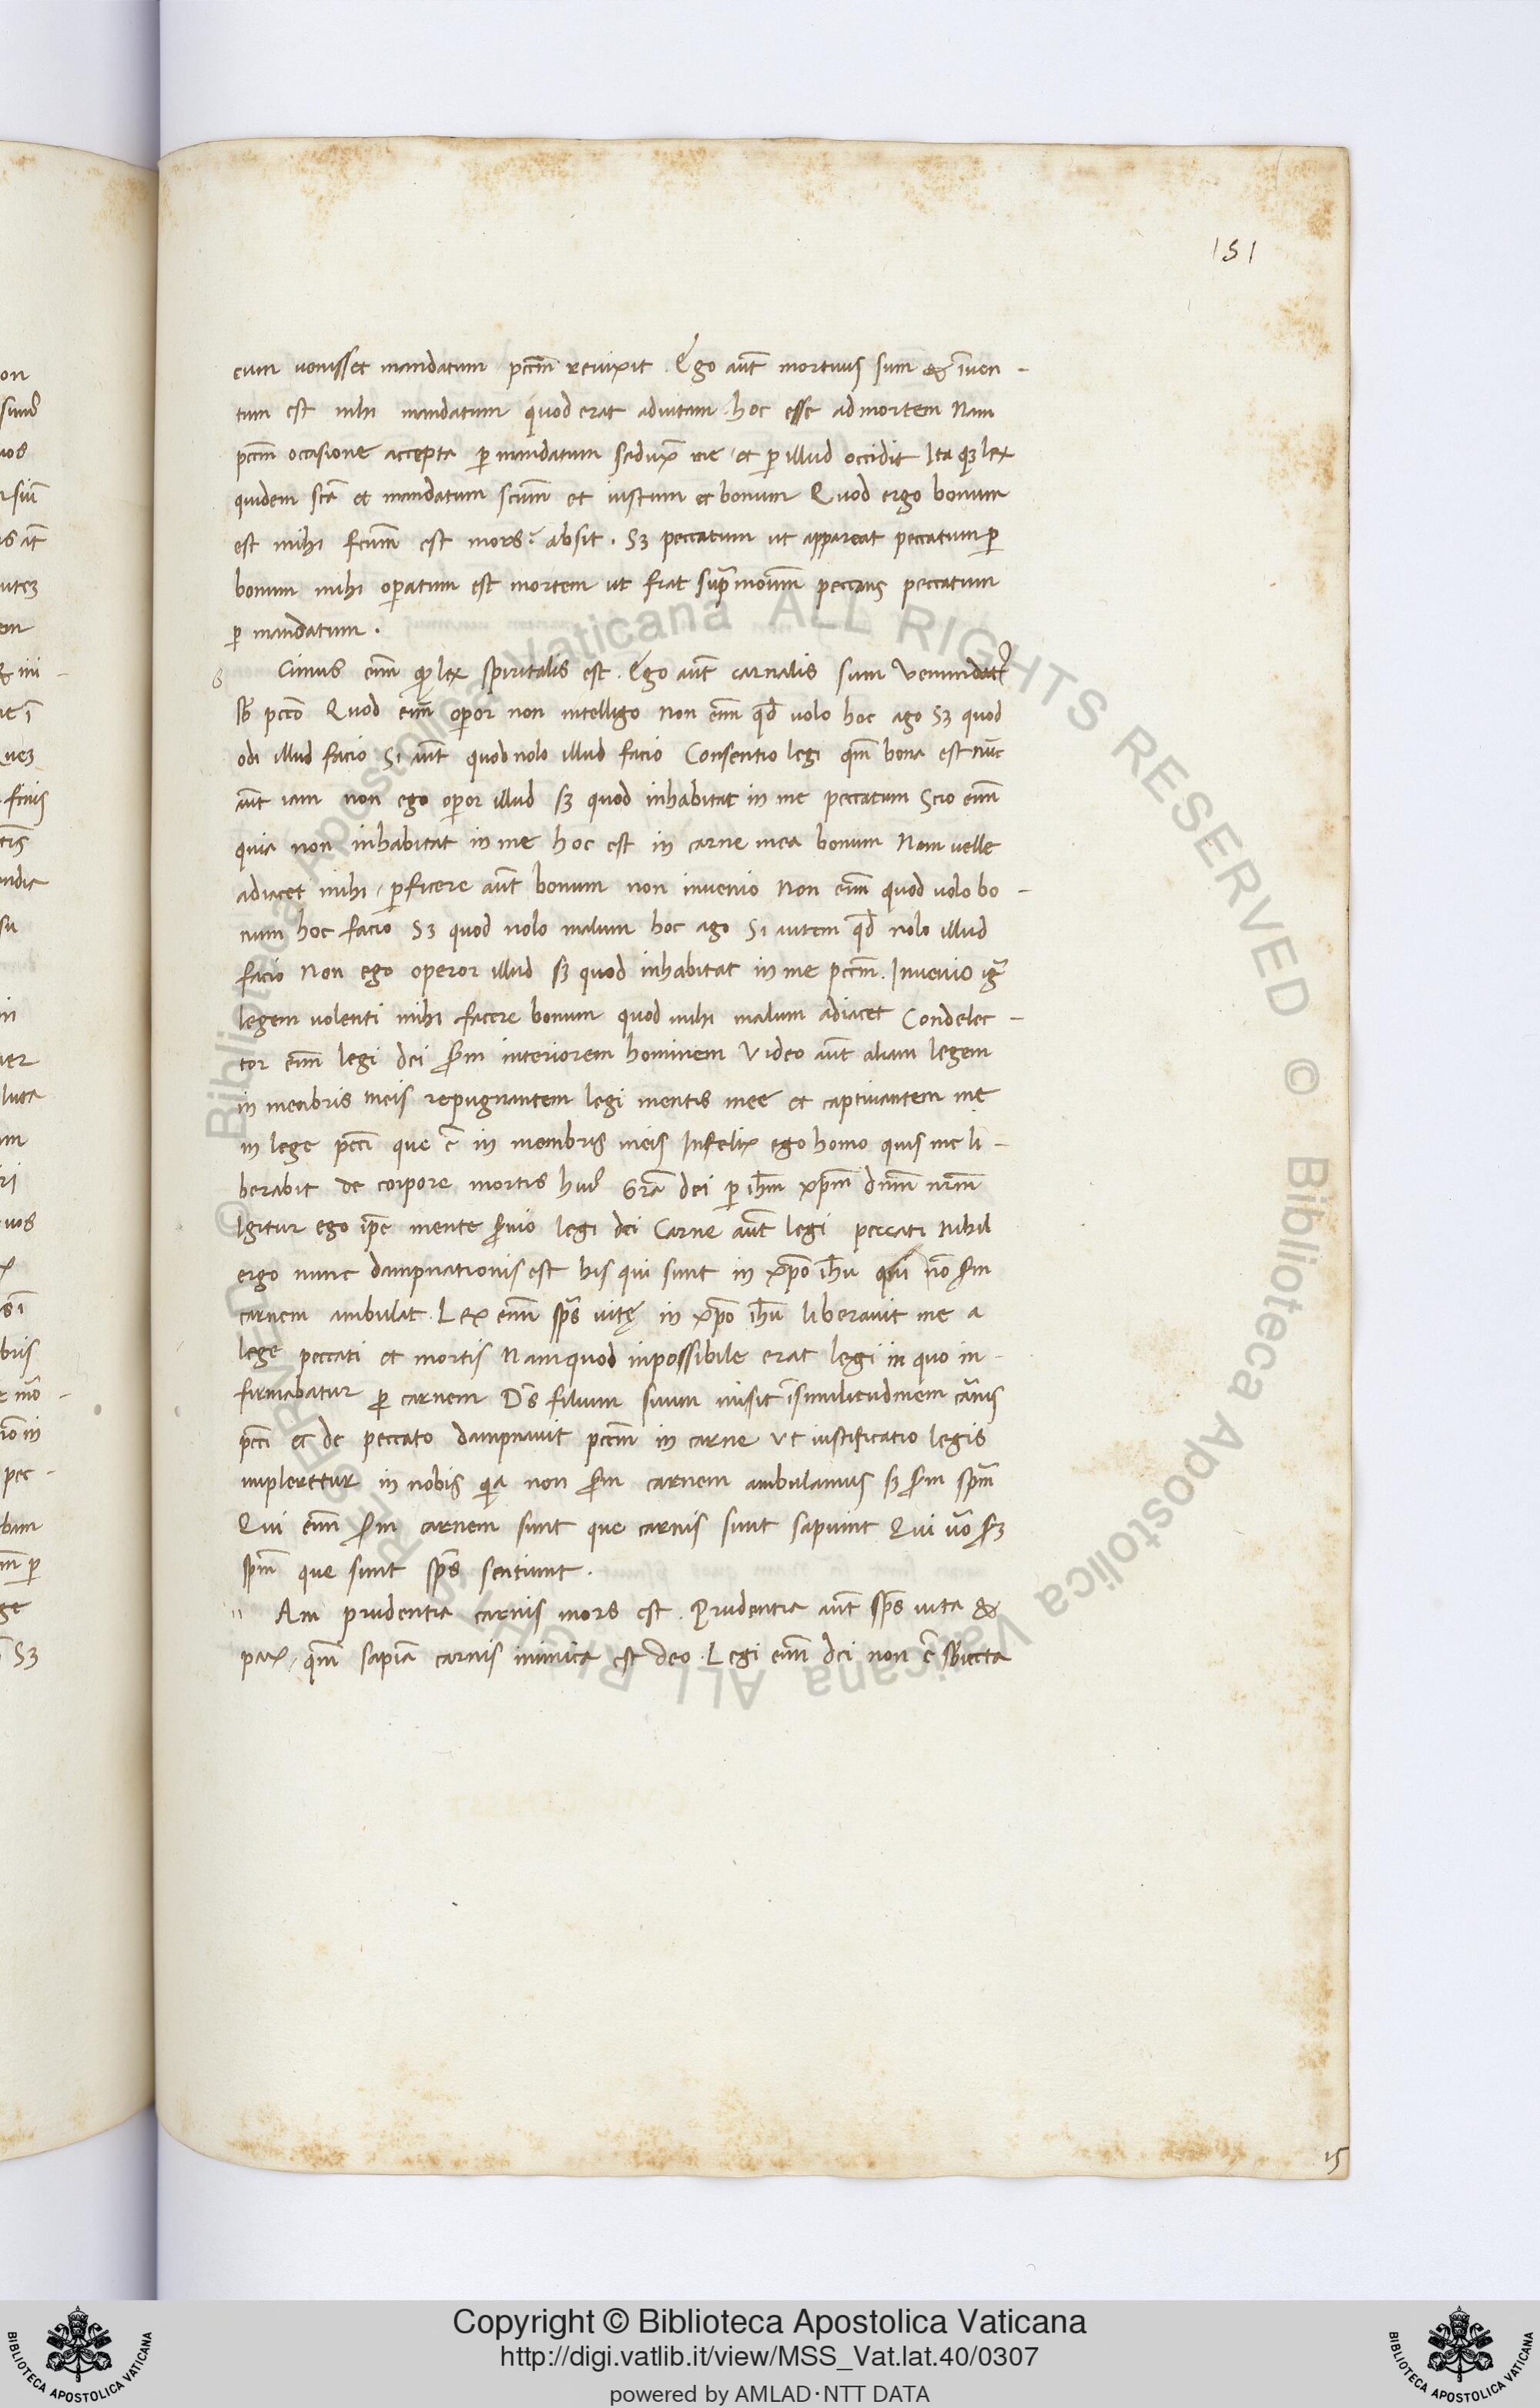 151
cum venisset mandatum pcc̄m reuixit . Ego aūt mortuus sum & īuen -
tum est mihi mandatum quod erat ad uitam hoc esse ad mortem Nam
pcc̄m occasione accepta ꝑ mandatum sedux̄ me et ꝑ illud occidit Ita qꝫ lex
quidem sc̄a et mandatum sc̄um et iustum et bonum Quod ergo bonum
est mihi fc̄um est mors? absit . Sꝫ peccatum ut appareat peccatum ꝑ
bonum mihi oꝑatum est mortem ut fiat supra peccans peccatum
ꝑ mandatum .
Cimus eīm lex spiritalis est . Ego aūt carnalis sum Venundat
sb̄ pcc̄o Quod eīm oꝑor non intelligo non eīm qd̄ uolo hoc ago Sꝫ quod
odi illud facio Si aūt quod nolo illud facio Consentio legi qm̄ bona est nūc
aūt iam non ego oꝑor illud sꝫ quod inhabitat in me peccatum Scio eīm
quia non inhabitat in me hoc est in carne mea bonum Nam uelle
adiacet mihi ꝑficere aūt bonum non inuenio Non eīm quod uolo bo -
num hoc facio Sꝫ quod nolo malum hoc ago Si autem qd̄ nolo illud
facio Non ego operor illud sꝫ quod inhabitat in me pcc̄m . Inuenio igr̄
legem uolenti mihi facere bonum quod mihi malum adiacet Condelec -
tor eīm legi dei sm̄ interiorem hominem Video aūt aliam legem
in menbris meis repugnantem legi mentis mee et captiuantem me
in lege pcc̄i que ē in membris meis Infelix ego homo quis me li -
berabit de corpore mortis hui᾿ Gr̄a dei ꝑ ih̄m xp̄m dn̄m nr̄m
Igitur ego ip̄e mente legi dei Carne aūt legi peccati Nihil
ergo nunc dampnationis est his qui sunt in xp̄o ih̄u qui nō sm̄
carnem ambulāt . Lex eīm sp̄s uitę in xp̄o ih̄u liberauit me a
lege peccati et mortis Nam quod inpossibile erat legi in quo in -
firmabatur ꝑ carnem Ds̄ filium suum misit carnis
pcc̄i et de peccato dampnauit pcc̄m in carne Vt iustificatio legis
inplerettur in nobis non sm̄ carnem ambulamus sꝫ sm̄ sp̄m
Qui eīm sm̄ carnem sunt que carnis sunt sapiunt Qui ūo
sp̄m que sunt sp̄s sentiunt .
Am prudentia carnis mors est . Prudentia aūt sp̄s uita &
pax , qm̄ sapiā carnis inimica est deo . Legi eīm dei non ē sb̄iecta
15
Copyright © Biblioteca Apostolica Vaticana
http://digi.vatlib.it/view/MSS_Vat.lat.40/0307
powered by AMLAD·NTT DATA
BIBLIOTECA APOSTOLICA VATICANA
BIBLIOTECA APOSTOLICA VATICANA